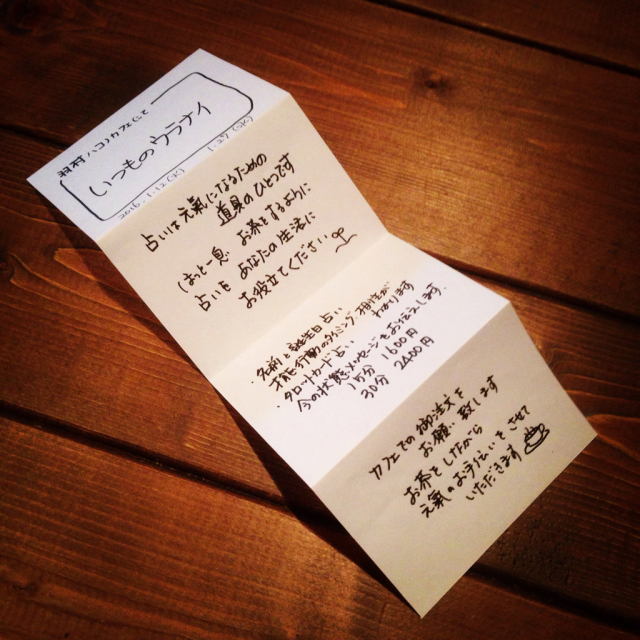 羽村ハコカフェにて
いつものウラナイ
2016.1.12(火) 1.27(水)
占いは元気になるための
道具のひとつです
ほっと一息 お茶をするように
占いも あなたの生活に
お役立てください
・名前と誕生日占い
行動のタイミング 相性が わかります
・タロットカード占い
今の状態とメッセージをお伝えします.
15分 1600円
30分 2600円
カフェでの御注文を
お願い致します
お茶をしながら
元気のお手伝いをさせて
いただきます